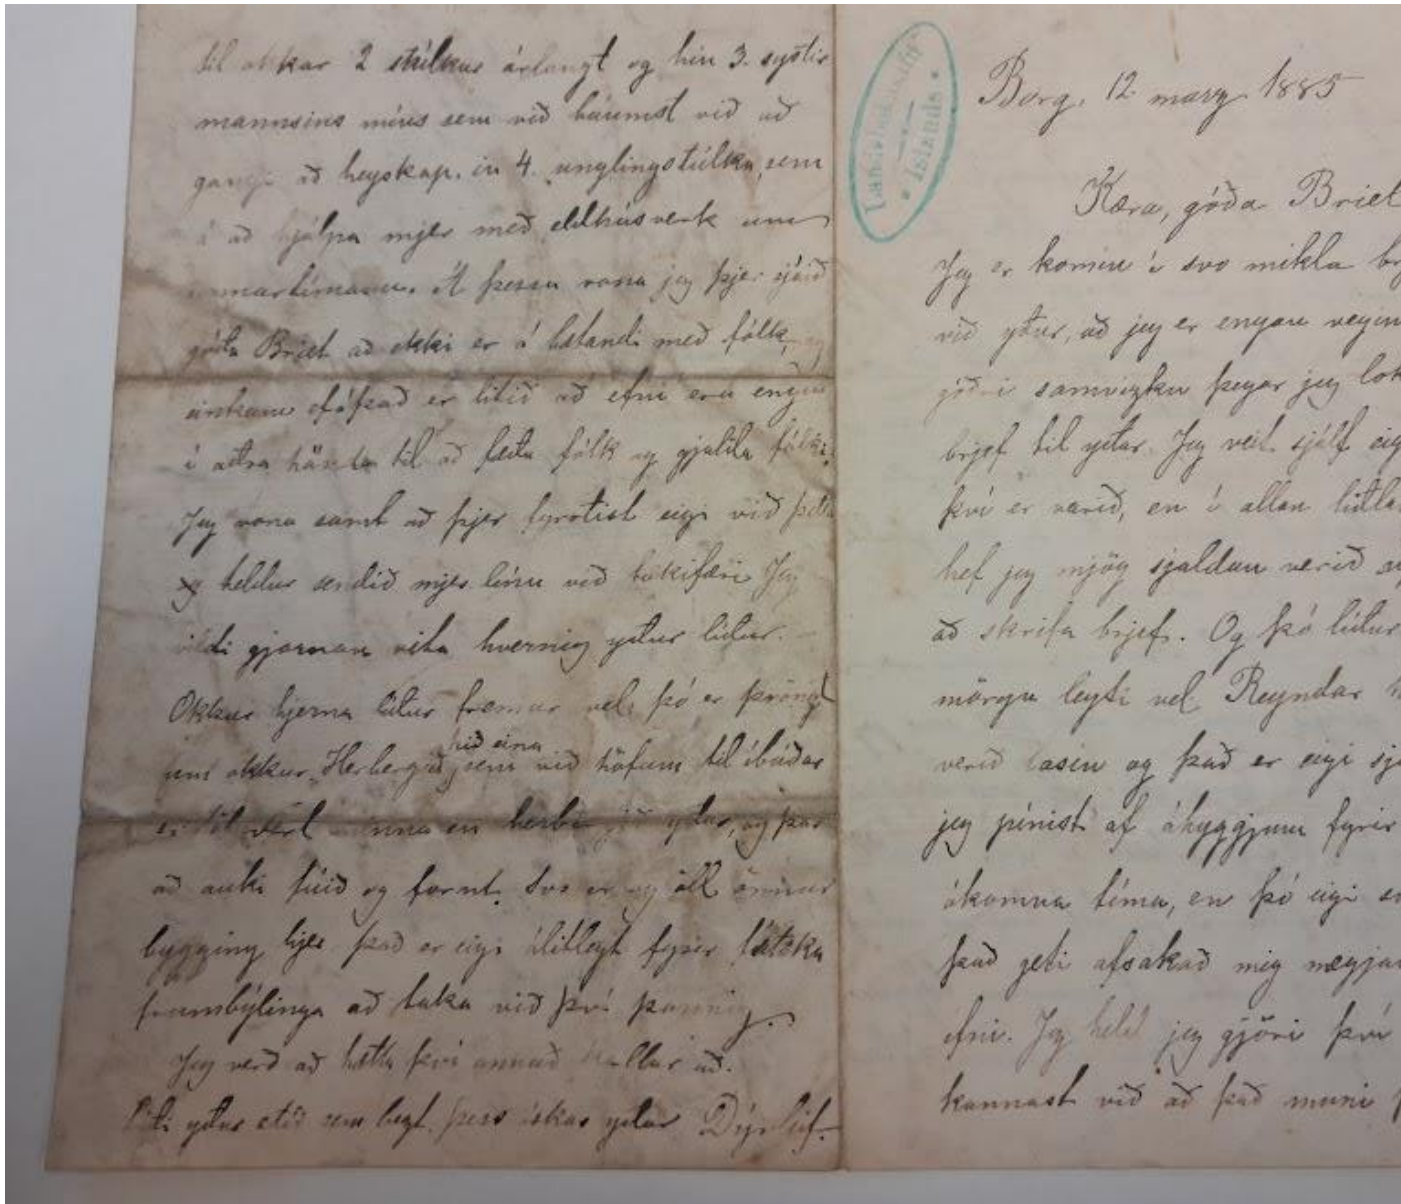 til okkar 2 stúlkur árlangt og hin 3. systir
mannsins míns sem við búumst við að
gangi að heyskap, en 4. unglingstúlka, sem
á að hjálpa mjer með eldhúsverk um
sumartímann. Á þessu vona jeg þjer sjáið
góða Bríet að ekki er á hstandi með fólk, og
einkum ef á það er litið að efni eru engin
í aðra hönd til að fæða fólk og gjalda fólki.
Jeg vona samt að þjer fyrtist eigi við þetta
og heldur sendið mjer línu við tækifæri Jeg
vildi gjarnan vita hvernig yður líður.
Okkur hjerna líður fremur vel, þó er þröngt
um okkur. Herbergið, hið eina sem við höfum til íbúðar
er minna en yðar, og þar
að auki fúið og fornt. Svo er og öll önnur
bygging hjer. það er eigi álitlegt fyrir fátæka
frumbýlinga að taka við því þannig.
Jeg verð að hætta því annað kallar að.
Líði yður ætíð sem bezt, þess óskar yðar Dýrleif.
Landsbókasafn
Íslands
Borg, 12. marz 1885
Kæra, góða Bríet
Jeg er komin í svo mikla
við yður, að jeg er engan vegin
góðri samvizku þegar jeg
brjef til yðar. Jeg veit sjálf
því er varið, en í allan
hef jeg mjög sjaldan verið
að skrifa brjef. Og þó líður
mörgu leyti vel. Reyndar
verið lasin og það er eigi
jeg pínist af áhyggjum fyrir
ókomna tíma, en þó eigi
það geti afsakað mig
efni. Jeg held jeg gjöri því
kannast við að það muni